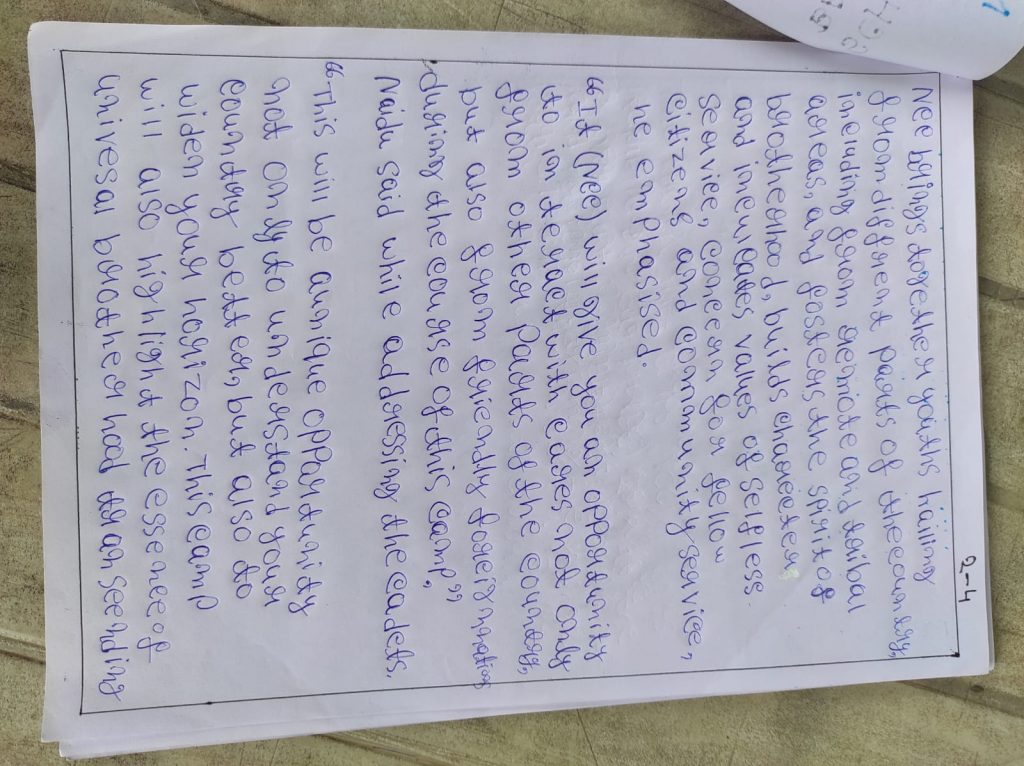 2-4
NCC brings together youths hailing
from different parts of the country,
including from remote and tribal
areas, and fosters the spirit of
brotherhood, builds character
and inculcates values of selfless
service, concern for fellow
citizens and community service,
he emphasised.
"It (NCC) will give you an opportunity
to interact with cadres not only
from other Parts of the country,
but also from friendly foreign nations
during the course of this camp,"
Naidu said while addressing the cadets.
"This will be a unnique opportunity
not only to understand your
country better, but also to
widen your horizon. This camp
will also highlight the essence of
univesal brotherhood transcending